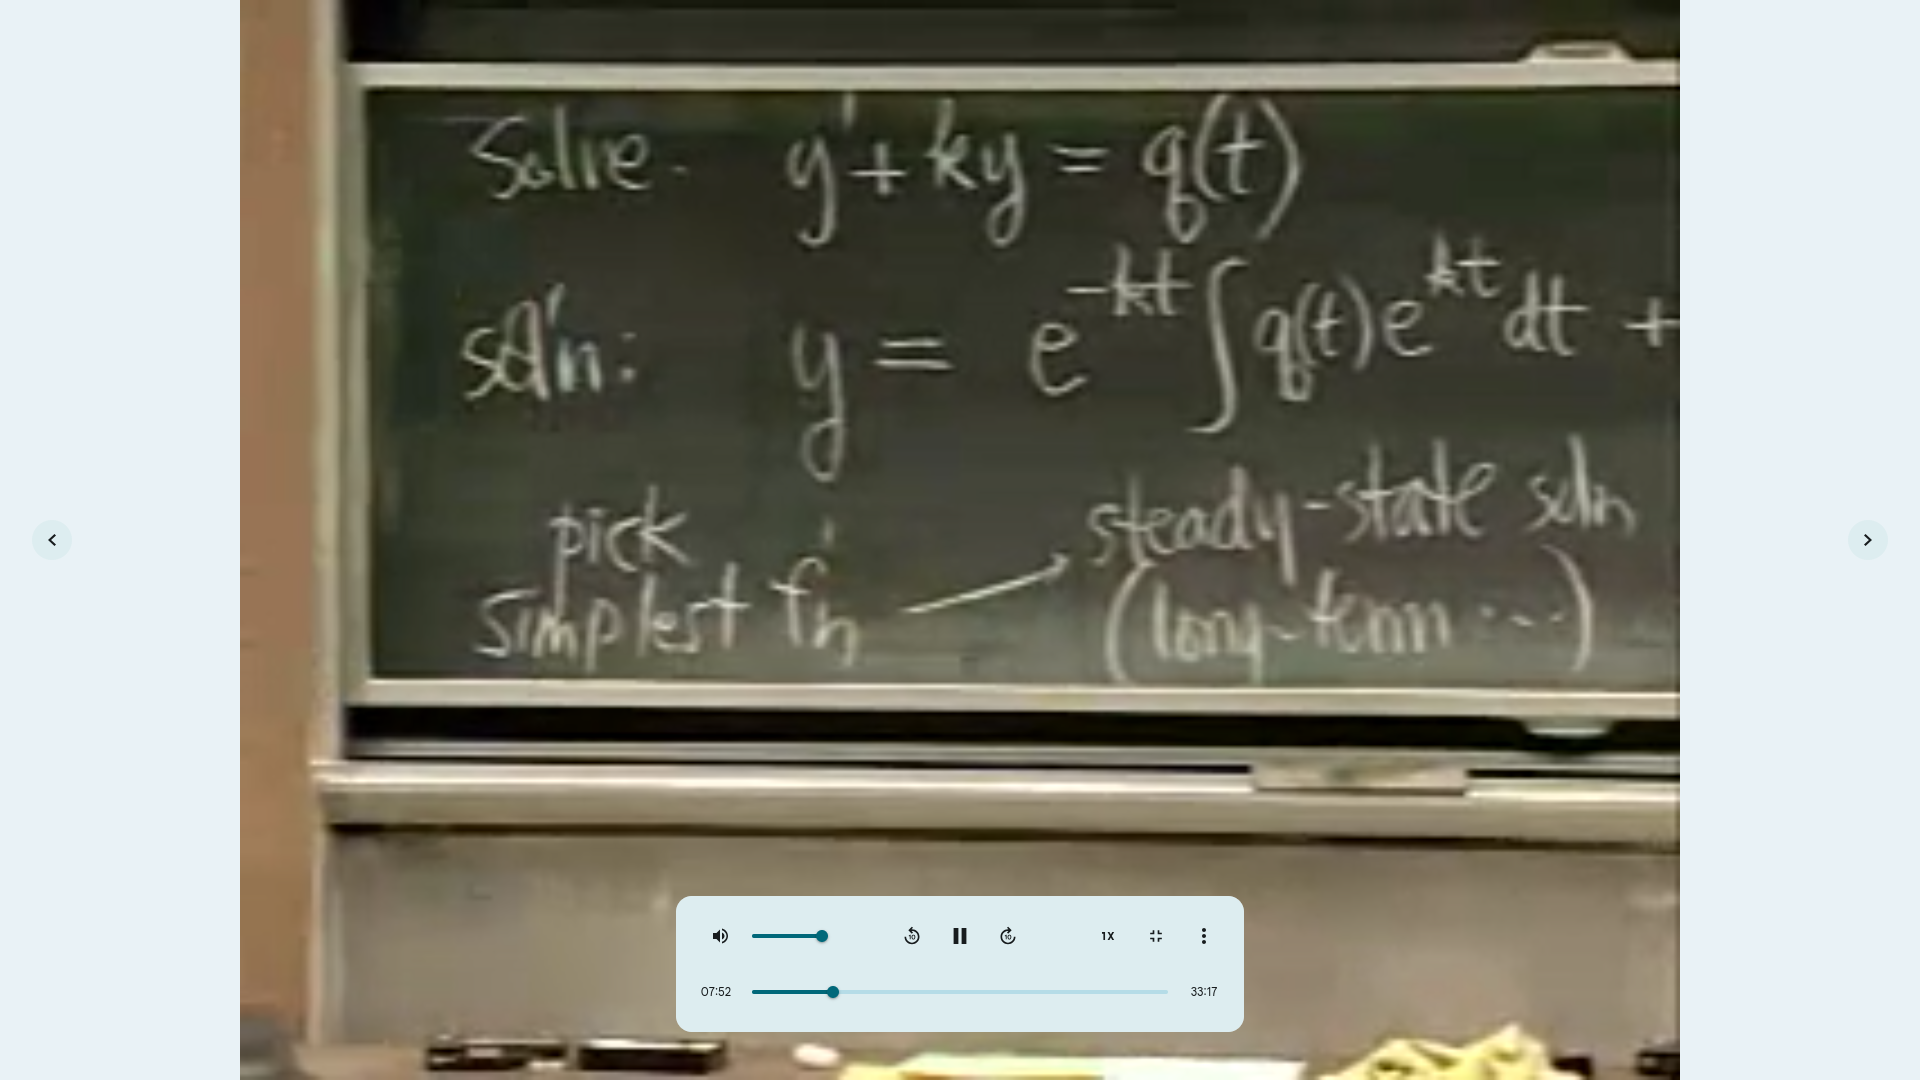 Solve. y' + ky = q(t)
sol'n: y = e^{-kt} ∫ q(t) e^{kt} dt +
pick
simplest f'n → steady-state soln
(long-term ...)
10 10 1X
07:52 33:17